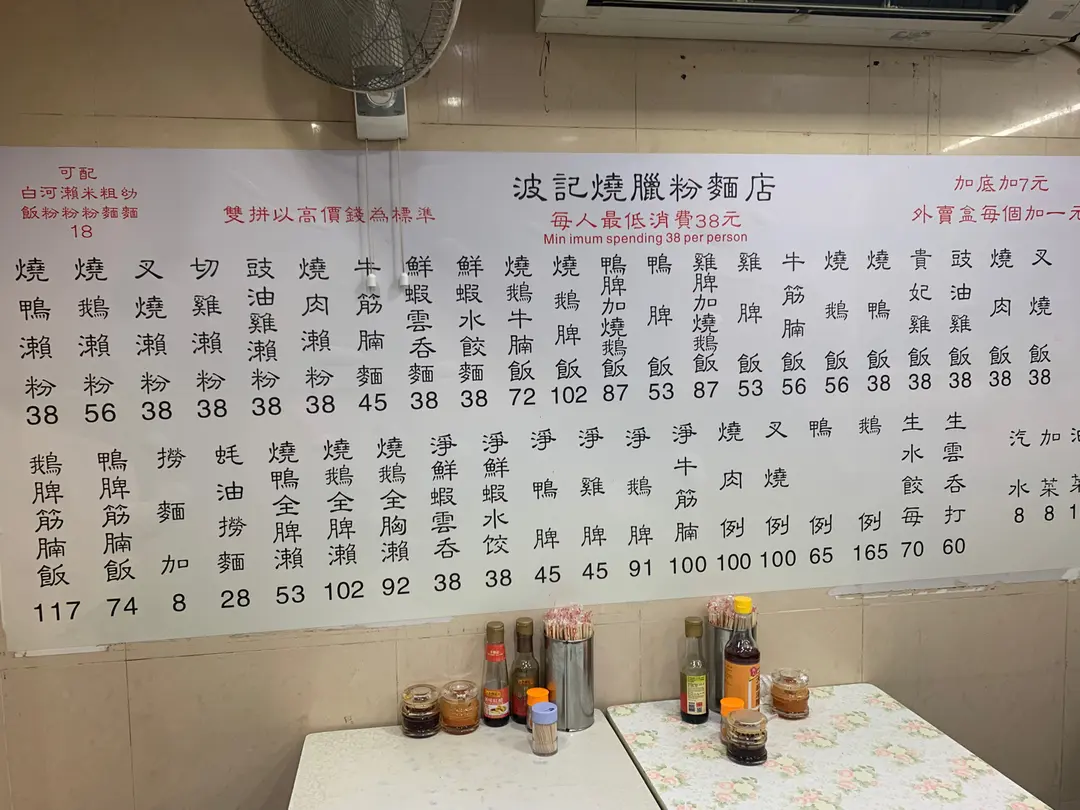 可配
白河瀨米粗幼
飯粉粉粉麵麵
18
雙拼以高價錢為標準
波記燒臘粉麵店
每人最低消費38元
Min imum spending 38 per person
加底加7元
外賣盒每個加一元
燒鴨瀨粉 38
燒鵝瀨粉 56
叉燒瀨粉 38
切雞瀨粉 38
豉油雞瀨粉 38
燒肉瀨粉 38
牛筋腩麵 45
鮮蝦雲吞麵 38
鮮蝦水餃麵 38
燒鵝牛腩飯 72
燒鵝脾飯 102
鴨脾加燒鵝飯 87
鴨脾飯 53
雞脾加燒鵝飯 87
雞脾飯 53
牛筋腩飯 56
燒鵝飯 56
燒鴨飯 38
貴妃雞飯 38
豉油雞飯 38
燒肉飯 38
叉燒飯 38
鵝脾筋腩飯 117
鴨脾筋腩飯 74
撈麵加 8
蚝油撈麵 28
燒鴨全脾瀨 53
燒鵝全脾瀨 102
燒鵝全胸瀨 92
淨鮮蝦雲吞 38
淨鮮蝦水饺 38
淨鴨脾 45
淨雞脾 45
淨鵝脾 91
淨牛筋腩 100
燒肉例 100
叉燒例 100
鴨例 65
鵝例 165
生水餃每 70
生雲吞打 60
汽水 8
加菜 8